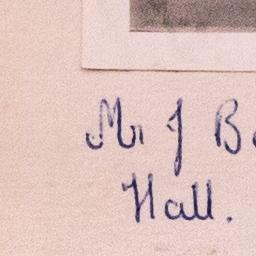 Mr J
Hall.